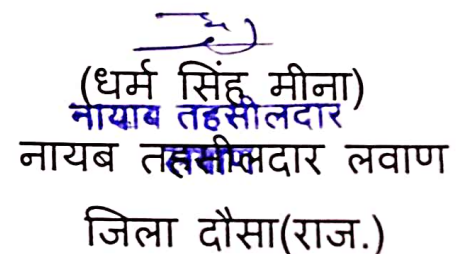 (धर्म सिंह मीना)
नायाब तहसीलदार
नायब तहसीलदार लवाण
जिला दौसा(राज.)